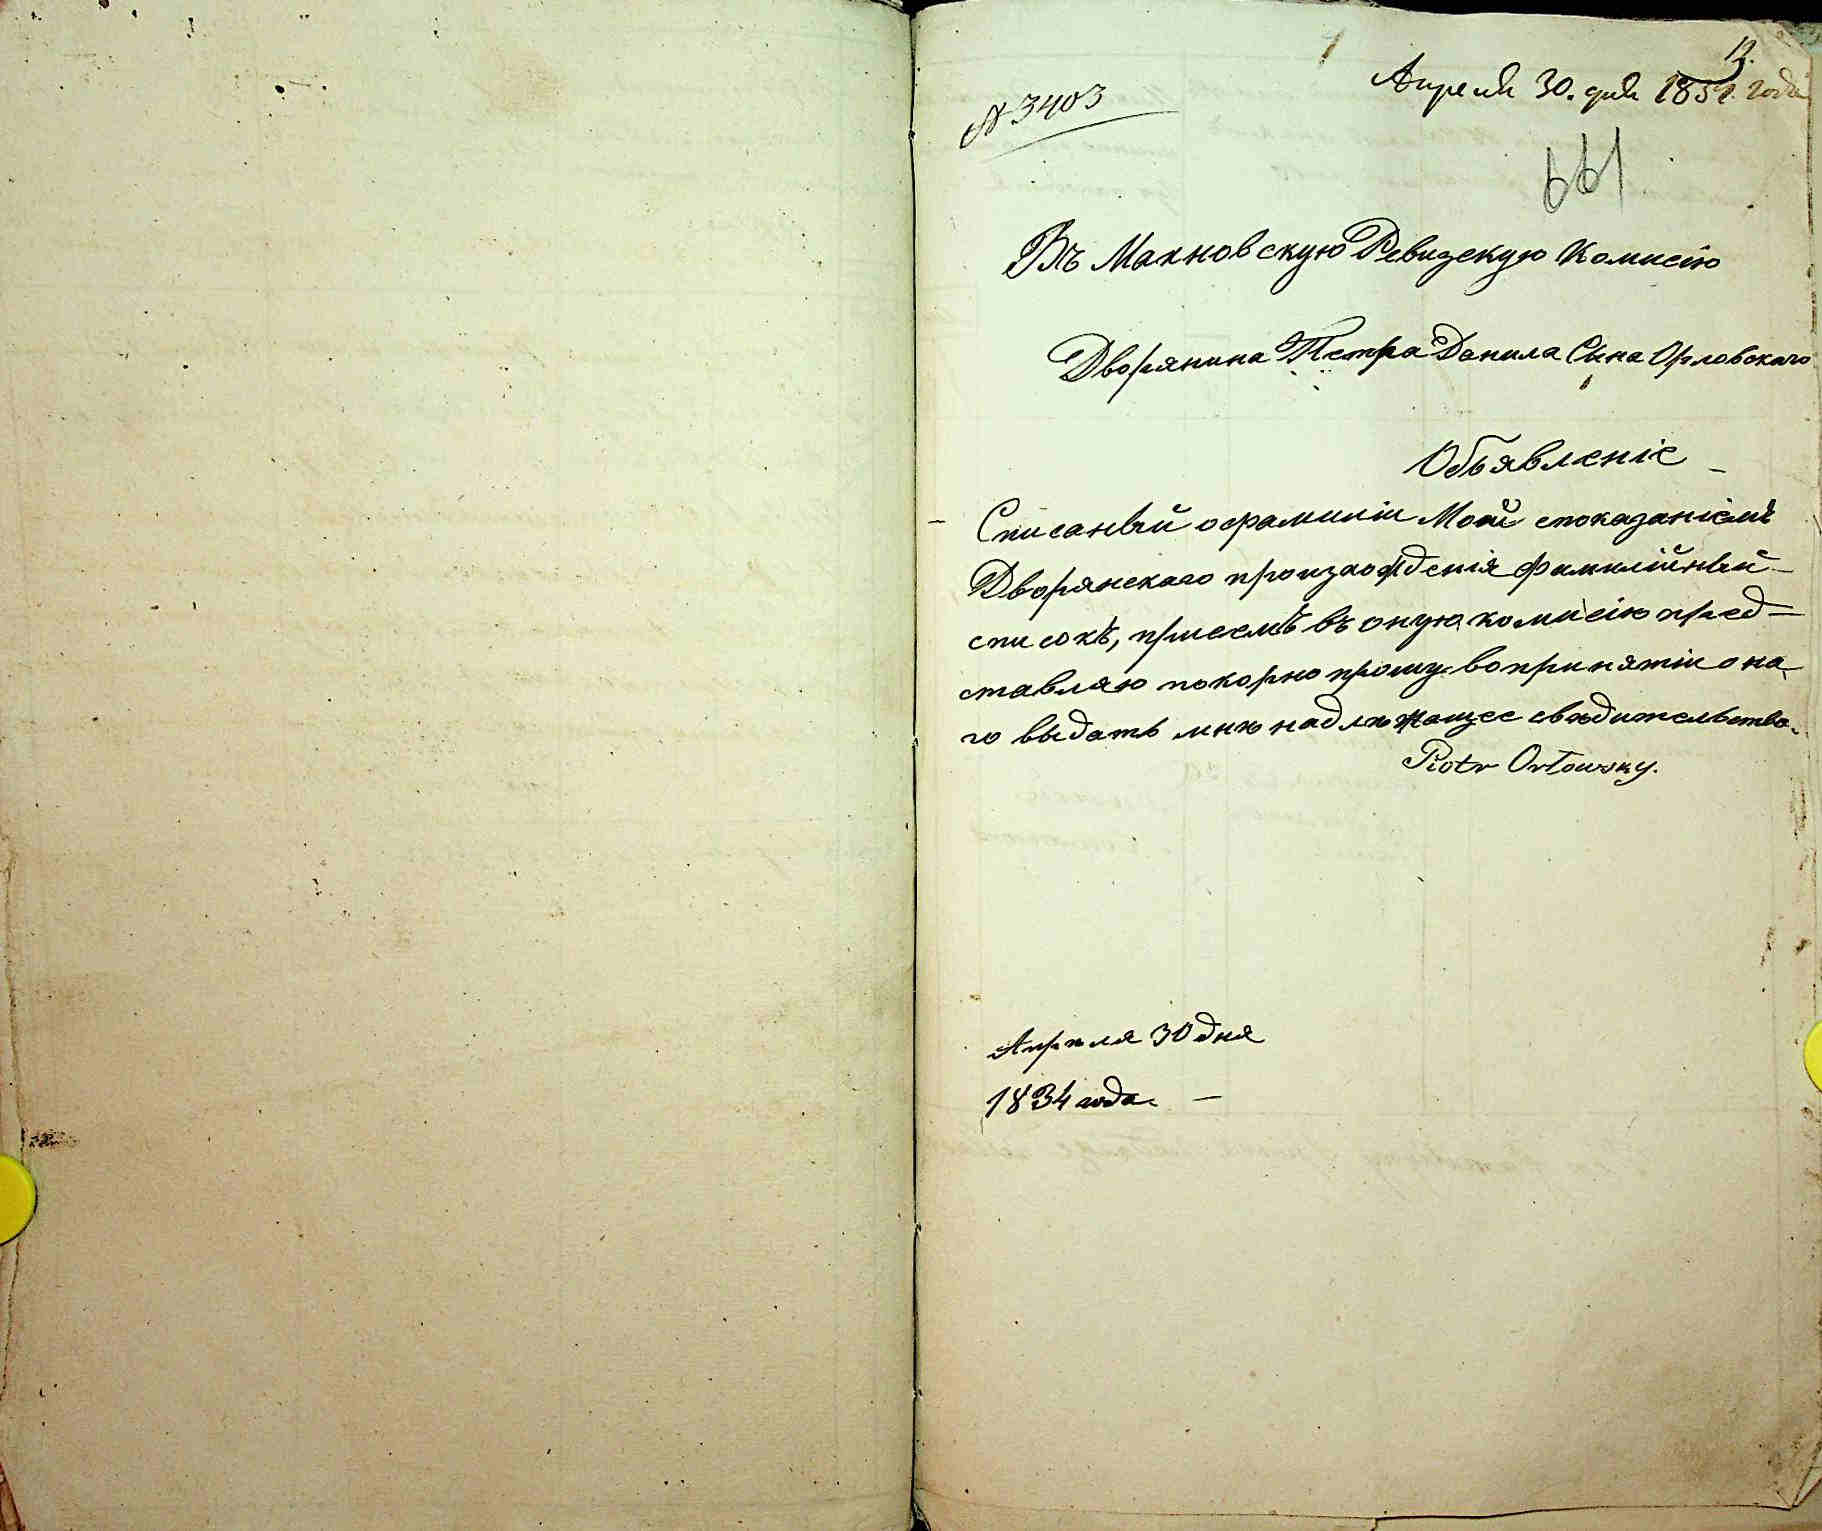 12.
Апреля 30. дня 1834. года
№ 3403
661
Въ Махновскую Ревизскую Комисію
Дворянина Петра Данила Сына Орловскаго
Объявленіе
Списаный о фамиліи Моей споказаніемъ
Дворянскаго произхожденія фамилійный
списокъ, присемъ въ оную комисію пред-
ставляю покорно прошу вопринятіи она
го выдать мнѣ надлѣжащее свѣдительство.
Piotr Orłowsky.
Апрѣля 30 дня
1834 года. —